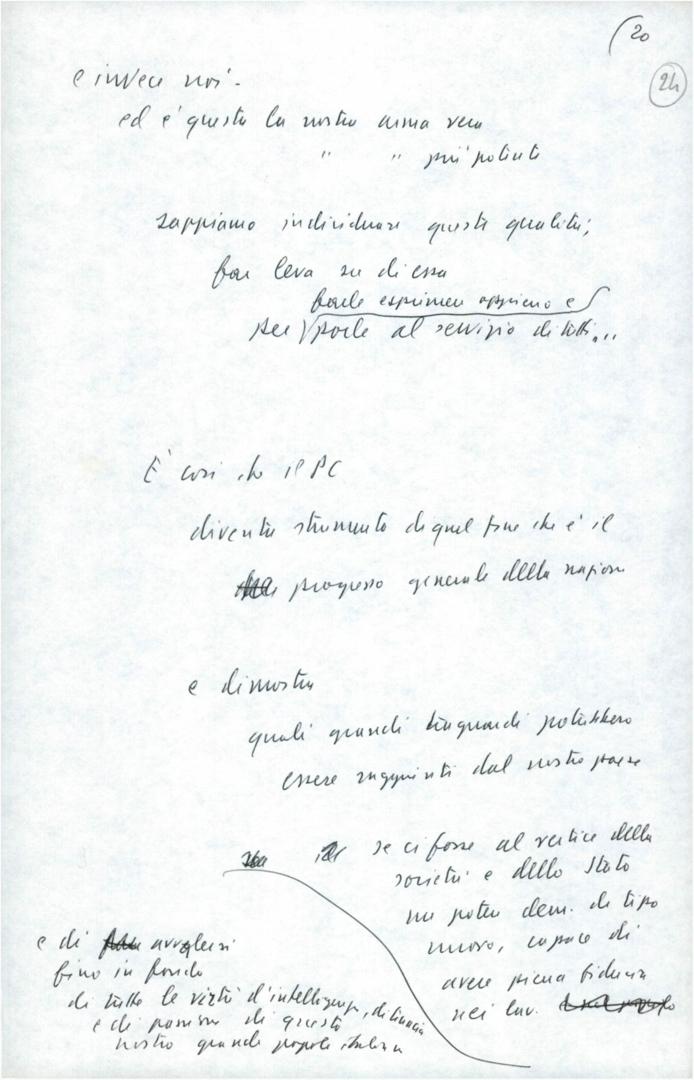 20
24
e invece noi -
ed è questa la nostra arma vera
" " più potente
sappiamo individuare queste qualità;
far leva su di essa
farle esprimere appieno e
per porle al servizio di tutti...
È così che il PC
diventa strumento di quel fine che è il
progresso generale della nazione
e dimostra
quali grandi traguardi potrebbero
essere raggiunti dal nostro paese
se ci fosse al vertice della
società e dello Stato
un potere dem. di tipo
nuovo, capace di
avere piena fiducia
nei lav.
e di avvalersi
fino in fondo
di tutte le virtù d'intelligenza, di tenacia
e di passione di questo
nostro grande popolo italiano